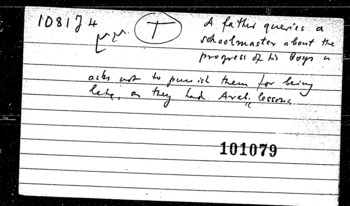 108174 T A father queries a
schoolmaster about the
progress of his boys &
asks not to punish them for being
late, as they had Arab. lessons
101079